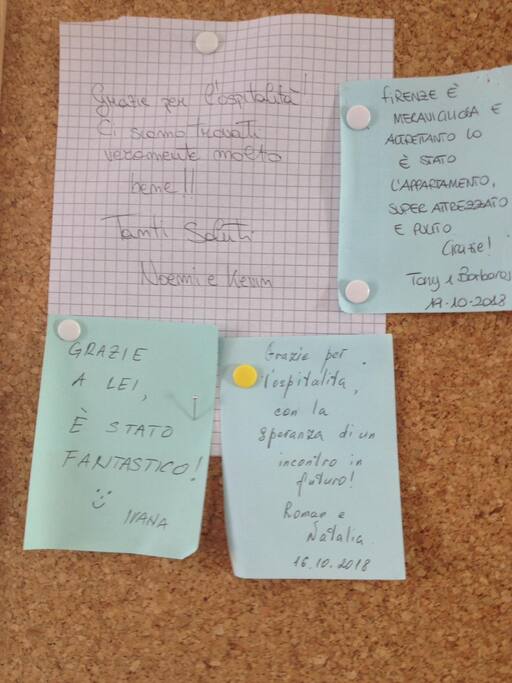 Grazie per l'ospitalità!
Ci siamo trovati
veramente molto
bene!!
Tanti Saluti
Noemi e Kevin
FIRENZE È
MERAVIGLIOSA E
ALTRETTANTO LO
È STATO
L'APPARTAMENTO,
SUPER ATTREZZATO
E PULITO
Grazie!
Tony e Barbara
19-10-2018
GRAZIE
A LEI,
È STATO
FANTASTICO!
IVANA
Grazie per
l'ospitalita,
con la
speranza di un
incontro in
futuro!
Roman e
Natalia
16.10.2018